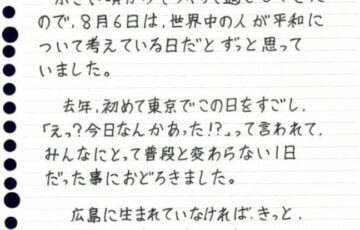 ので、8月6日は、世界中の人が平和に
ついて考えている日だとずっと思って
いました。
去年、初めて東京でこの日をすごし、
「えっ？今日なんかあった!?」って言われて、
みんなにとって普段と変わらない1日
だった事におどろきました。
広島に生まれていなければ、きっと、